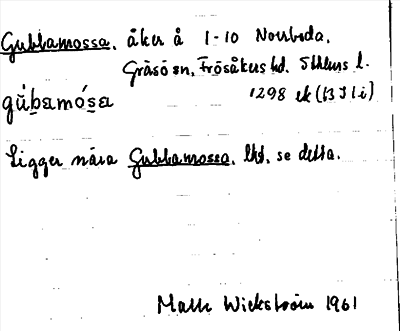 Gubbamossa, åker å 1-10 Norrboda,
Gräsö sn, Frösåkers hd. Sthlms l.
gŭ́bamósa 1298 ek (13I1i)
Ligger nära Gubbamossa, lht, se detta.
Matts Wickström 1961